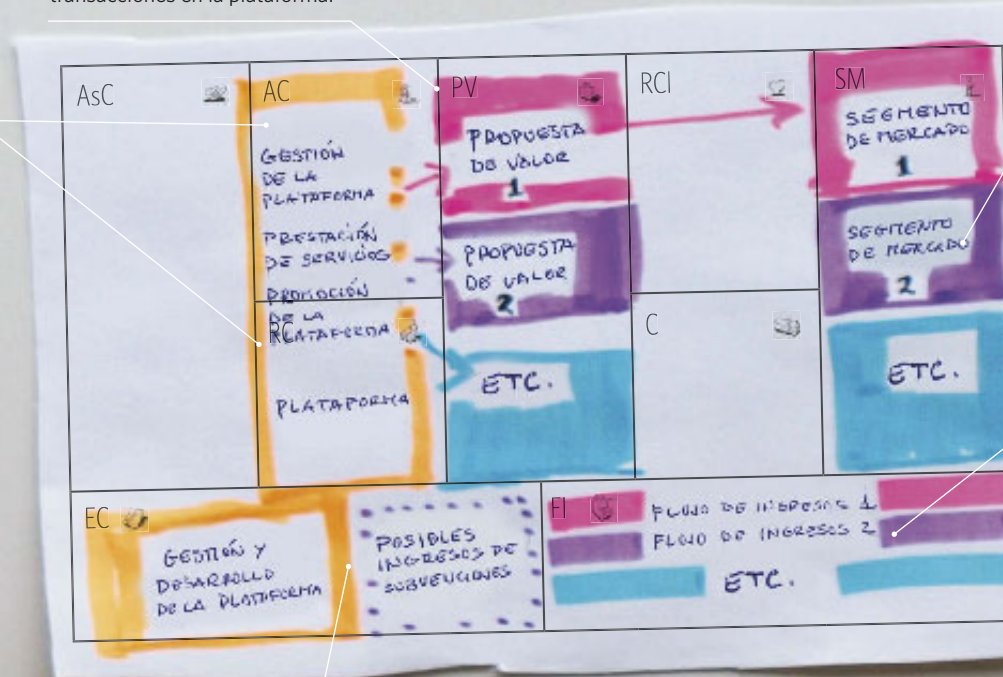 transacciones en la plataforma.
AsC
AC
GESTIÓN
DE LA
PLATAFORMA
PRESTACIÓN
DE SERVICIOS
PROMOCIÓN
DE LA
PLATAFORMA
RC
PLATAFORMA
PV
PROPUESTA
DE VALOR
1
PROPUESTA
DE VALOR
2
ETC.
RCl
C
SM
SEGMENTO
DE MERCADO
1
SEGMENTO
DE MERCADO
2
ETC.
EC
GESTIÓN Y
DESARROLLO
DE LA PLATAFORMA
POSIBLES
INGRESOS DE
SUBVENCIONES
FI
FLUJO DE INGRESOS 1
FLUJO DE INGRESOS 2
ETC.